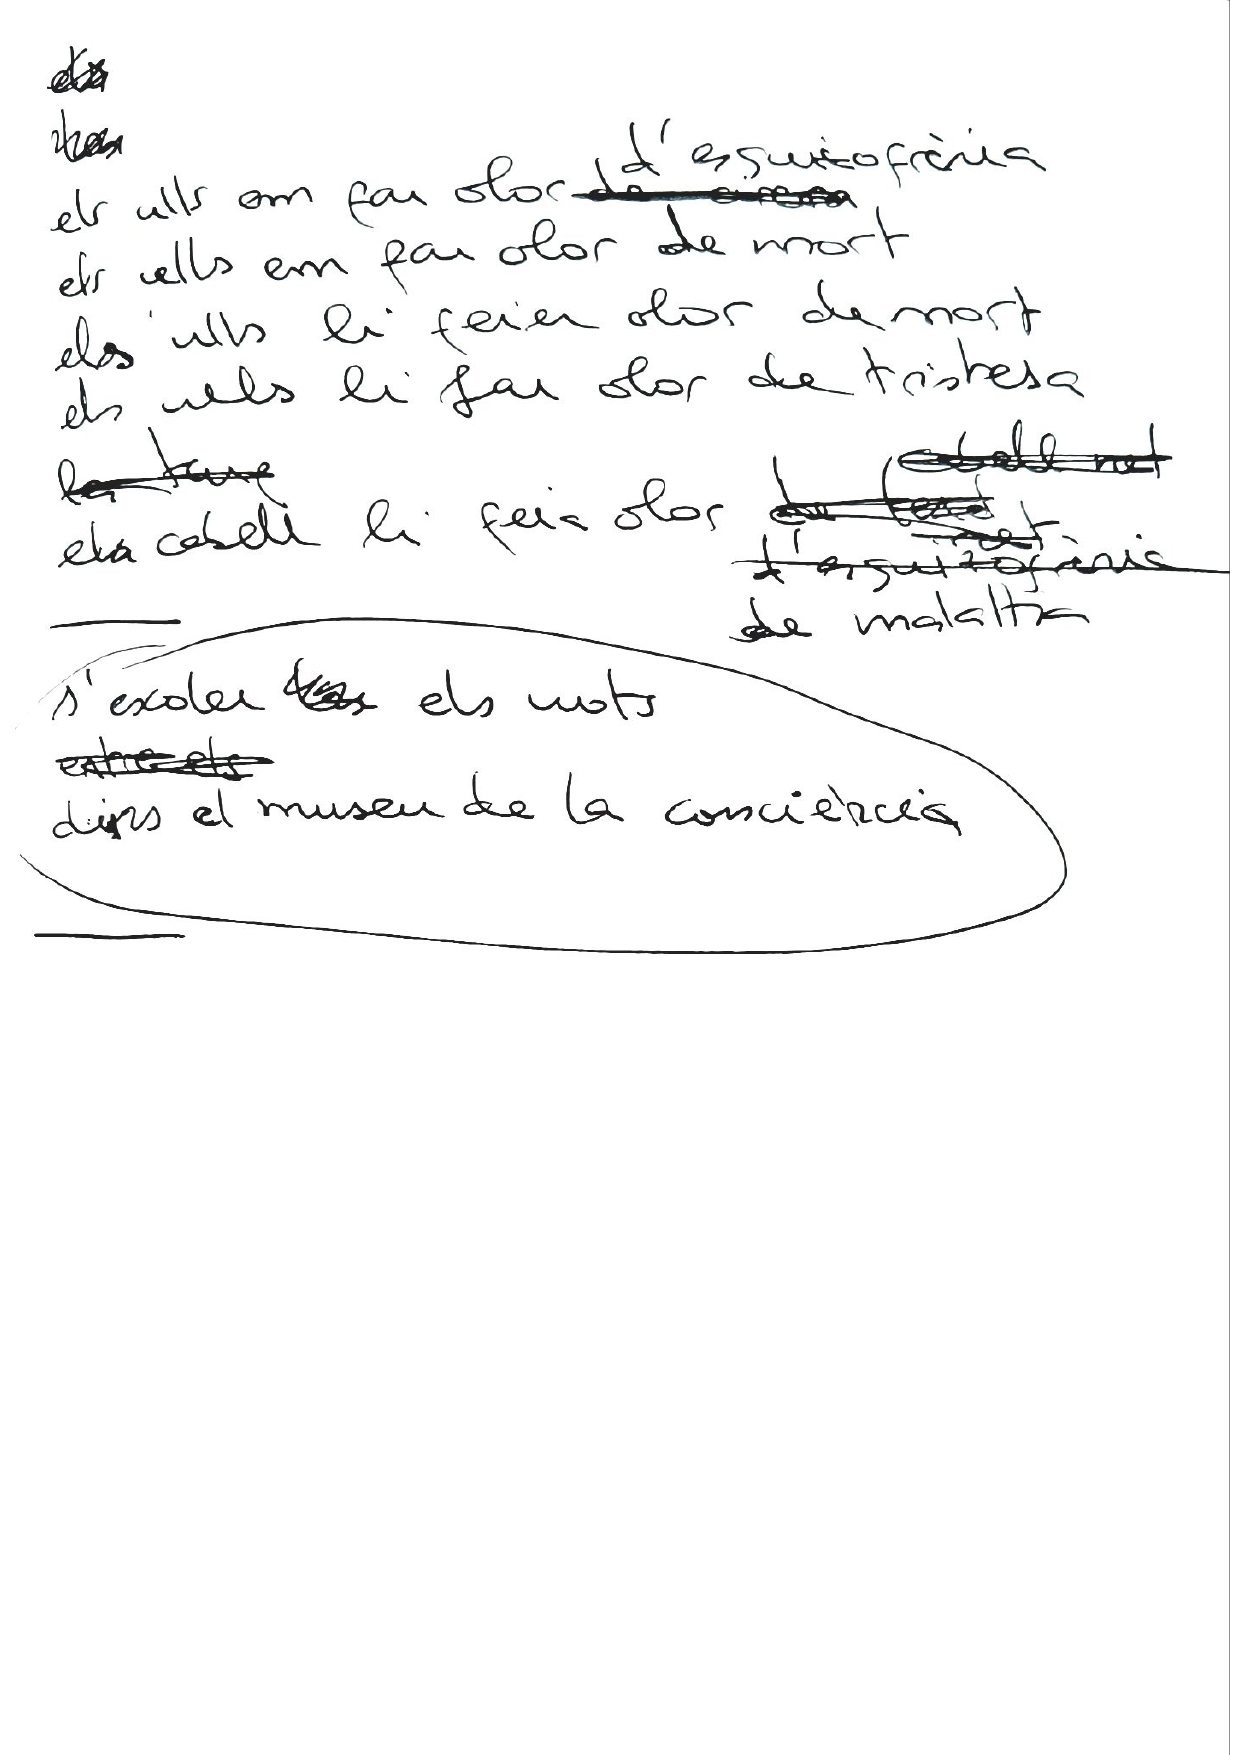 els ulls em fan olor d'esquizofrènia
els ulls em fan olor de mort
els ulls li feien olor de mort
els ulls li fan olor de tristesa
el cabell li feia olor
d'esquizofrènia
de malaltia
s'exolen els mots
entre els
dins el museu de la consciència